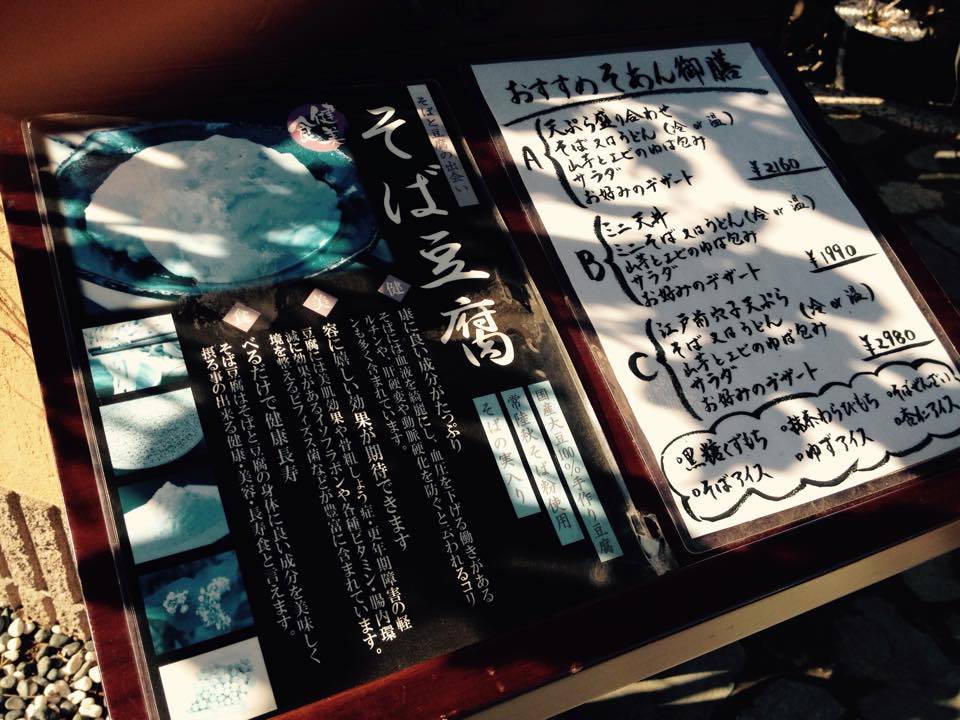 健美食
そばと豆腐の出会い
そば豆腐
国産大豆100%手作り豆腐
常陸秋そば粉使用
そばの実入り
健
康に良い成分がたっぷり
そばには血液を綺麗にし、血圧を下げる働きがある
ルチンや、肝硬変や動脈硬化を防ぐと云われるコリ
ンも多く含まれています。
美
容に嬉しい効果が期待できます
豆腐には美肌効果や骨粗しょう症・更年期障害の軽
減に効果があるイソフラボンや各種ビタミン・腸内環
境を整えるビフィズス菌などが豊富に含まれています。
食
べるだけで健康長寿
そば豆腐はそばと豆腐の身体に良い成分を美味しく
摂る事の出来る健康・美容・長寿食と言えます。
おすすめそあん御膳
A
天ぷら盛り合わせ
そば又はうどん(冷or温)
山芋とエビのゆば包み
サラダ
お好みのデザート
¥2160
B
ミニ天丼
ミニそば又はうどん(冷or温)
山芋とエビのゆば包み
サラダ
お好みのデザート
¥1990
C
江戸前穴子天ぷら
そば又はうどん(冷or温)
山芋とエビのゆば包み
サラダ
お好みのデザート
¥2980
・黒糖くずもち ・抹茶わらびもち ・そばぜんざい
・そばアイス ・ゆずアイス ・きなアイス